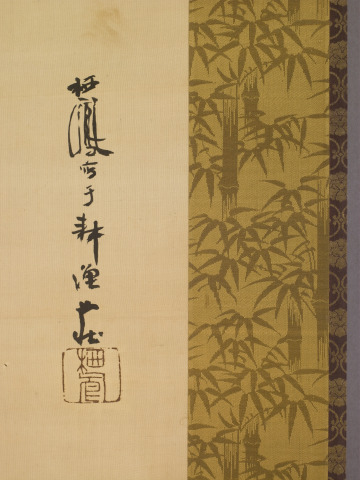 栖鳳写于耕漁荘